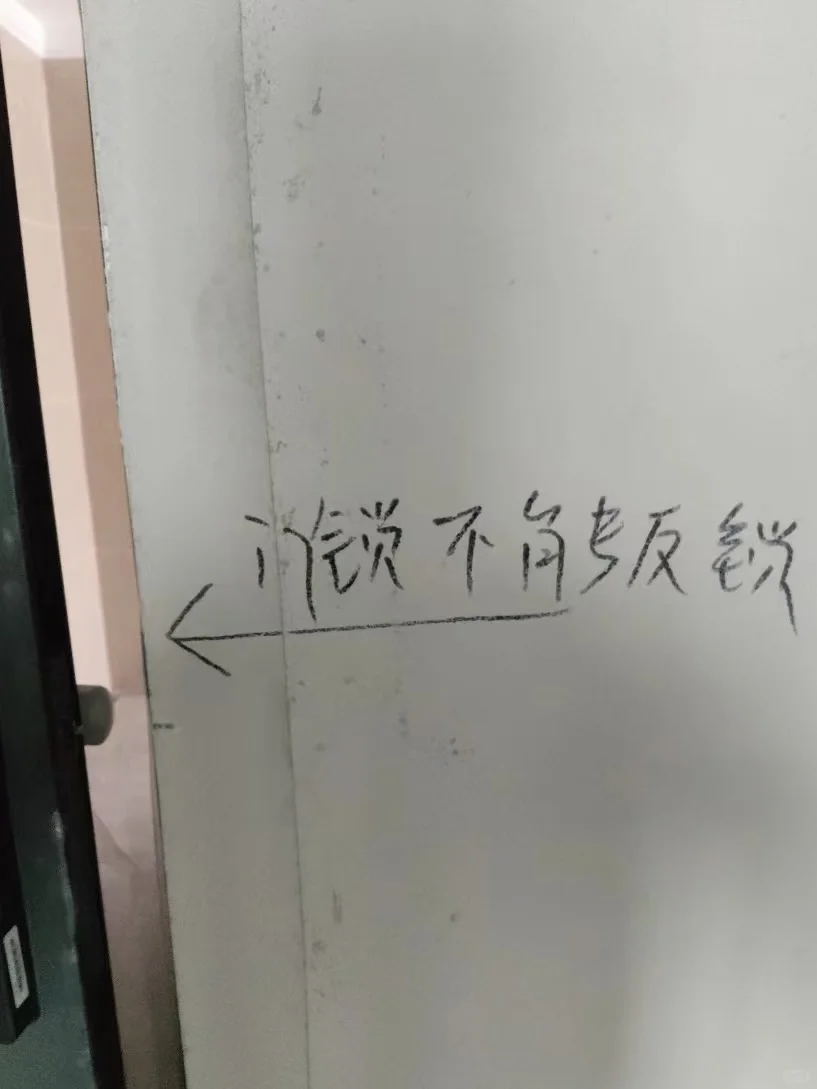 门锁不能反锁